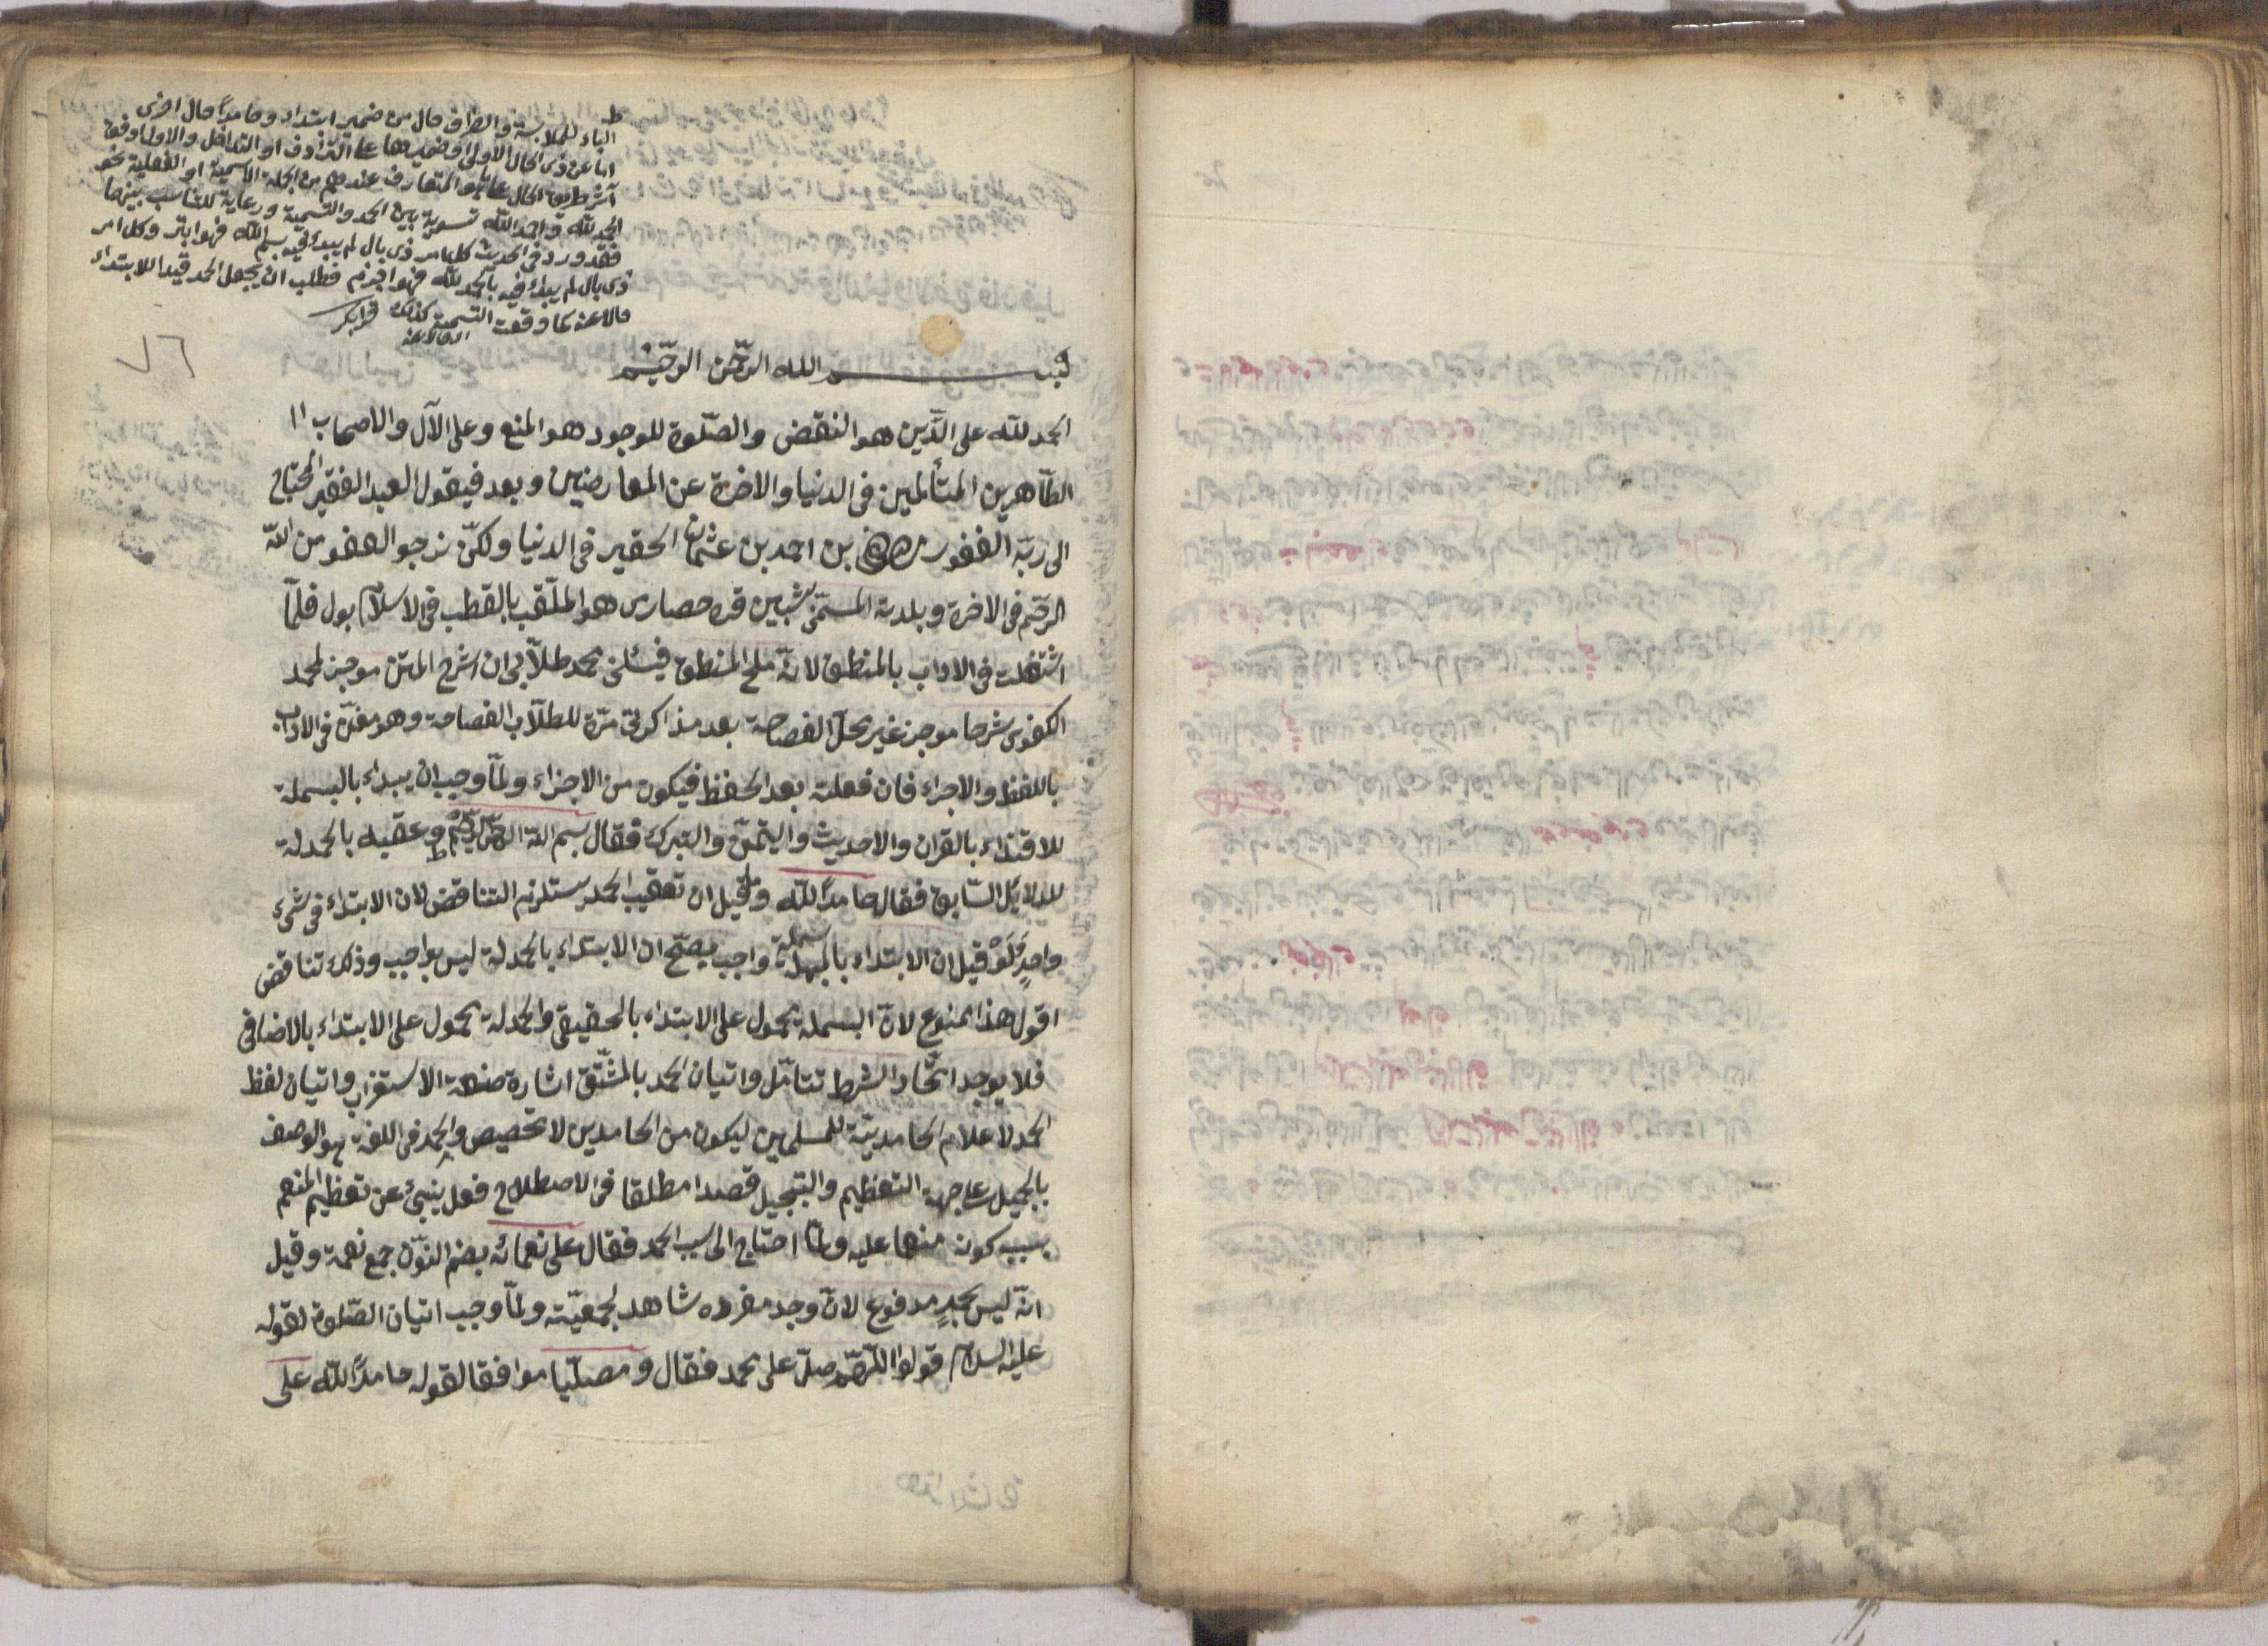 الباء للملابسة والظرف حال من ضمير ابتداء وحامداً حال اخرى
اما عن ذى الحال الاولى او ضميرها على الترادف او التداخل والاولى اوفق
آثر طريق الحال على ما هو المتعارف عندهم من الجملة الاسمية او الفعلية نحو
الحمد لله واحمد الله تسوية بين الحمد والتسمية ورعاية للتناسب بينهما
فقد ورد فى الحديث كل امر ذى بال لم يبدء فيه بسم الله فهو ابتر وكل امر
ذى بال لم يبدء فيه بالحمد لله فهو اجزم فطلب ان يجعل الحمد قيدا للابتداء
حالا عنه كما وقعت التسمية كذلك
اى حالا عنه
٧٦
بسم الله الرحمن الرحيم
الحمد لله على الدّين هو النقض والصّلوة للوجود هو المنع وعلى الآل والاصحاب
الطّاهرين المتألمين فى الدنيا والاخرة عن المعارضين وبعد فيقول العبد الفقير المحتاج
الى ربّه الغفور بن احمد بن عثمان الحقير فى الدنيا ولكنّ نرجو العفو من اللّه
الرحّيم فى الاخرة وبلدته المسمّى بشبين قره حصارى هو الملّقب بالقطب فى الاسلامبول فلمّا
اشتغلت فى الاداب بالمنطق لانّه ملح المنطق فيسئلنى محمد طلاّبى ان اشرح المتن موجز لمحمد
الكفوى شرحا موجز غير محلّ الفصاحة بعد مذاكرتى مرّة للطلاّب الفصاحة وهو مغنّ فى الاداب
باللفظ والاجراء فان فعلته بعد الحفظ فيكون من الاجزاء ولمّا وجب ان يبداء بالبسملة
للاقتداء بالقران والاحديث والتيمّن والتبرك فقال بسم اللّه الرّحمن الرّحيم وعقبه بالحمدلة
للدلايل السّابق فقال حامداً للّه وما قيل ان تعقيب الحمد يستلزم التناقض لان الابتداء فى شىء
واحدٍ فَلَوْ قيل ان الابتداء بالبسملة واجب يصحّ ان الابتداء بالحمدلة ليس بواجب وذلك تناقض
اقول هذا ممنوع لانّ البسملة محمول على الابتداء بالحقيقى والحمدلة محمول على الابتداء بالاضافى
فلا يوجد اتّحاد الشرط تتأمّل واتيان الحمد بالمشتّق اشارة صنعة الاستغراب واتيان لفظ
الحمد لاعلام الحامديّة للمسلمين ليكون من الحامدين لا تخصيص والحمد فى اللغة هو الوصف
بالجميل على جهة التعظيم والتبجيل قصدا مطلقا فى الاصطلاح فعل ينبئ عن تعظيم المنعم
بسبب كونه منعما عليه ولمّا احتاج الى سبب الحمد فقال على نعمائه بضم النوّن جمع نعمة وقيل
انّه ليس بجيدٍ مدفوع لانّ وجد مفرده شاهد لجمعيّته ولمّا وجب اتيان الصّلوة لقوله
عليه السلام قولوا اللّهمّ صلّ على محمد فقال ومصلّيا موافقا لقوله حامداً للّه على